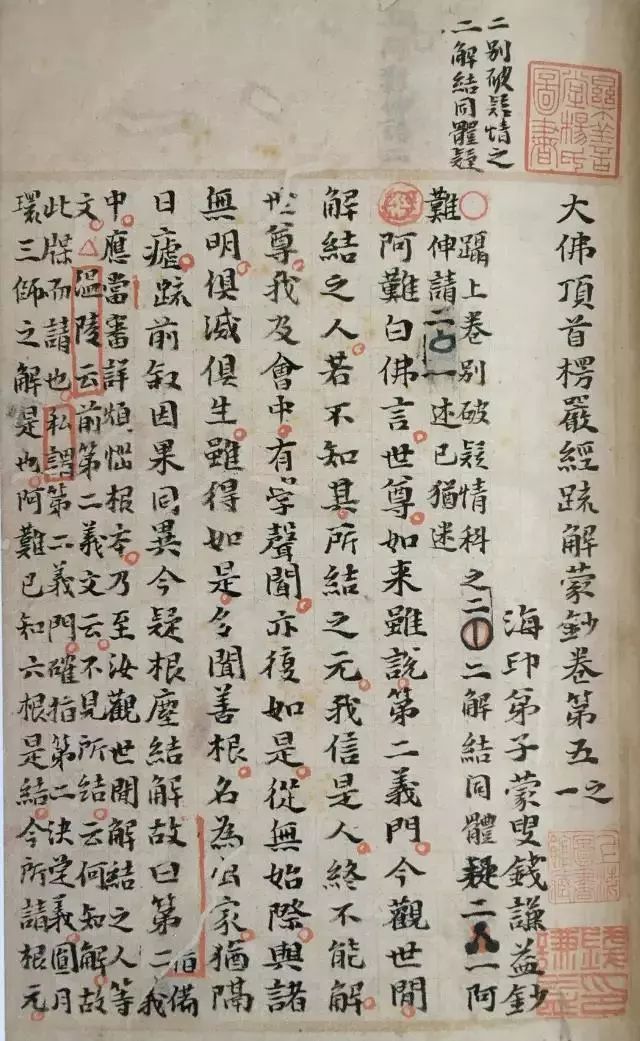 二別破疑情之
二解結同體疑
大佛頂首楞嚴經疏解蒙鈔卷第五之一
海印弟子蒙叟錢謙益鈔
○躡上卷別破疑情科之二 二解結同體疑二 一阿
難伸請二 一述已猶迷
經 阿難白佛言世尊如来雖說第二義門今觀世間
解結之人若不知其所結之元我信是人終不能解
世尊我及會中有學聲聞亦復如是從無始際與諸
無明俱滅俱生雖得如是多聞善根名為出家猶隔
日瘧疏前叙因果同異今疑根塵結解故曰第二我備
中應當審詳煩惱根本乃至汝觀世間解結之人等
文溫陵云前第二義文云不見所結云何知解故
此牒而請也私謂第二義門確指第二決定義圓月
環三師之解是也阿難已知六根是結今所請根元